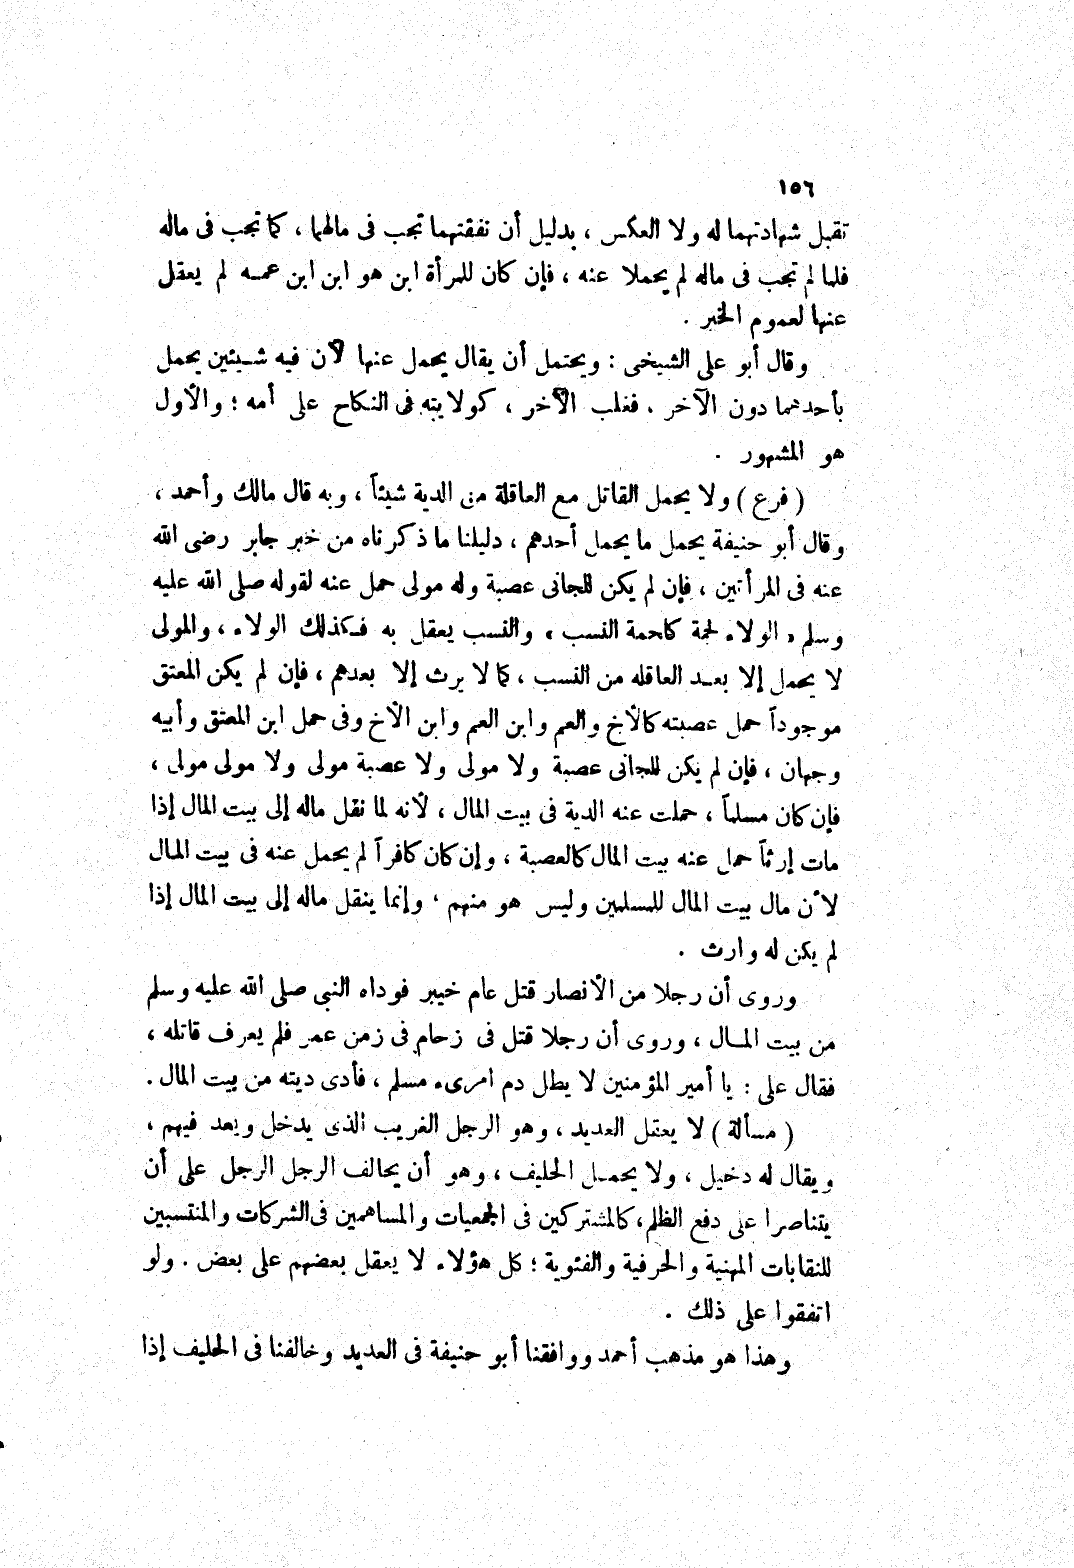 ١٥٦
تقبل شهادتهما له ولا العكس ، بدليل أن نفقتهما تجب فى مالهما ، كما تجب فى ماله
فلما لم تجب فى ماله لم يحملا عنه ، فإن كان للمرأة ابن هو ابن ابن عمه لم يعقل
عنها لعموم الخبر .
وقال أبو على الشيخى : ويحتمل أن يقال يحمل عنها لأن فيه شيئين يحمل
بأحدهما دون الآخر . فغلب الآخر ، كولايته فى النكاح على أمه ؛ والأول
هو المشهور .
( فرع ) ولا يحمل القاتل مع العاقلة من الدية شيئاً ، وبه قال مالك وأحمد ،
وقال أبو حنيفة يحمل ما يحمل أحدهم ، دليلنا ما ذكرناه من خبر جابر رضى الله
عنه فى المرأتين ، فإن لم يكن للجانى عصبة وله مولى حمل عنه لقوله صلى الله عليه
وسلم « الولاء لحمة كلحمة النسب » والنسب يعقل به فكذلك الولاء ، والمولى
لا يحمل إلا بعد العاقله من النسب ، كما لا يرث إلا بعدهم ، فإن لم يكن المعتق
موجوداً حمل عصبته كالأخ والعم وابن العم وابن الأخ وفى حمل ابن المعتق وأبيه
وجهان ، فإن لم يكن للجانى عصبة ولا مولى ولا عصبة مولى ولا مولى مولى ،
فإن كان مسلماً ، حملت عنه الدية فى بيت المال ، لأنه لما نقل ماله إلى بيت المال إذا
مات إرثاً حمل عنه بيت المال كالعصبة ، وإن كان كافراً لم يحمل عنه فى بيت المال
لأن مال بيت المال للمسلمين وليس هو منهم ، وإنما ينقل ماله إلى بيت المال إذا
لم يكن له وارث .
وروى أن رجلا من الأنصار قتل عام خيبر فوداه النبى صلى الله عليه وسلم
من بيت المال ، وروى أن رجلا قتل فى زحام فى زمن عمر فلم يعرف قاتله ،
فقال على : يا أمير المؤمنين لا يطل دم امرىء مسلم ، فأدى ديته من بيت المال .
( مسألة ) لا يعقل العديد ، وهو الرجل الغريب الذى يدخل ويعد فيهم ،
ويقال له دخيل ، ولا يحمل الحليف ، وهو أن يحالف الرجل الرجل على أن
يتناصرا على دفع الظلم ، كالمشتركين فى الجمعيات والمساهمين فى الشركات والمنتسبين
للنقابات المهنية والحرفية والفئوية ؛ كل هؤلاء لا يعقل بعضهم على بعض . ولو
اتفقوا على ذلك .
وهذا هو مذهب أحمد ووافقنا أبو حنيفة فى العديد وخالفنا فى الحليف إذا